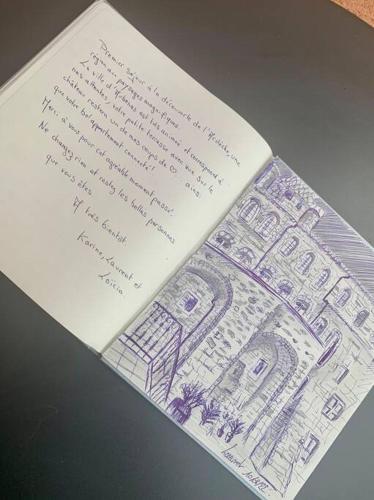 Premier séjour à la découverte de l'Ardèche, une
région aux paysages magnifiques.
La ville d'Aubenas est très animée et correspond à
nos attentes, votre petite terrasse avec vue sur le
château restera un de mes coups de ♡ ainsi
que votre bel appartement connecté!
Merci à vous pour cet agréable moment passé.
Ne changez rien et restez les belles personnes
que vous êtes
A très bientôt
Karine, Laurent et